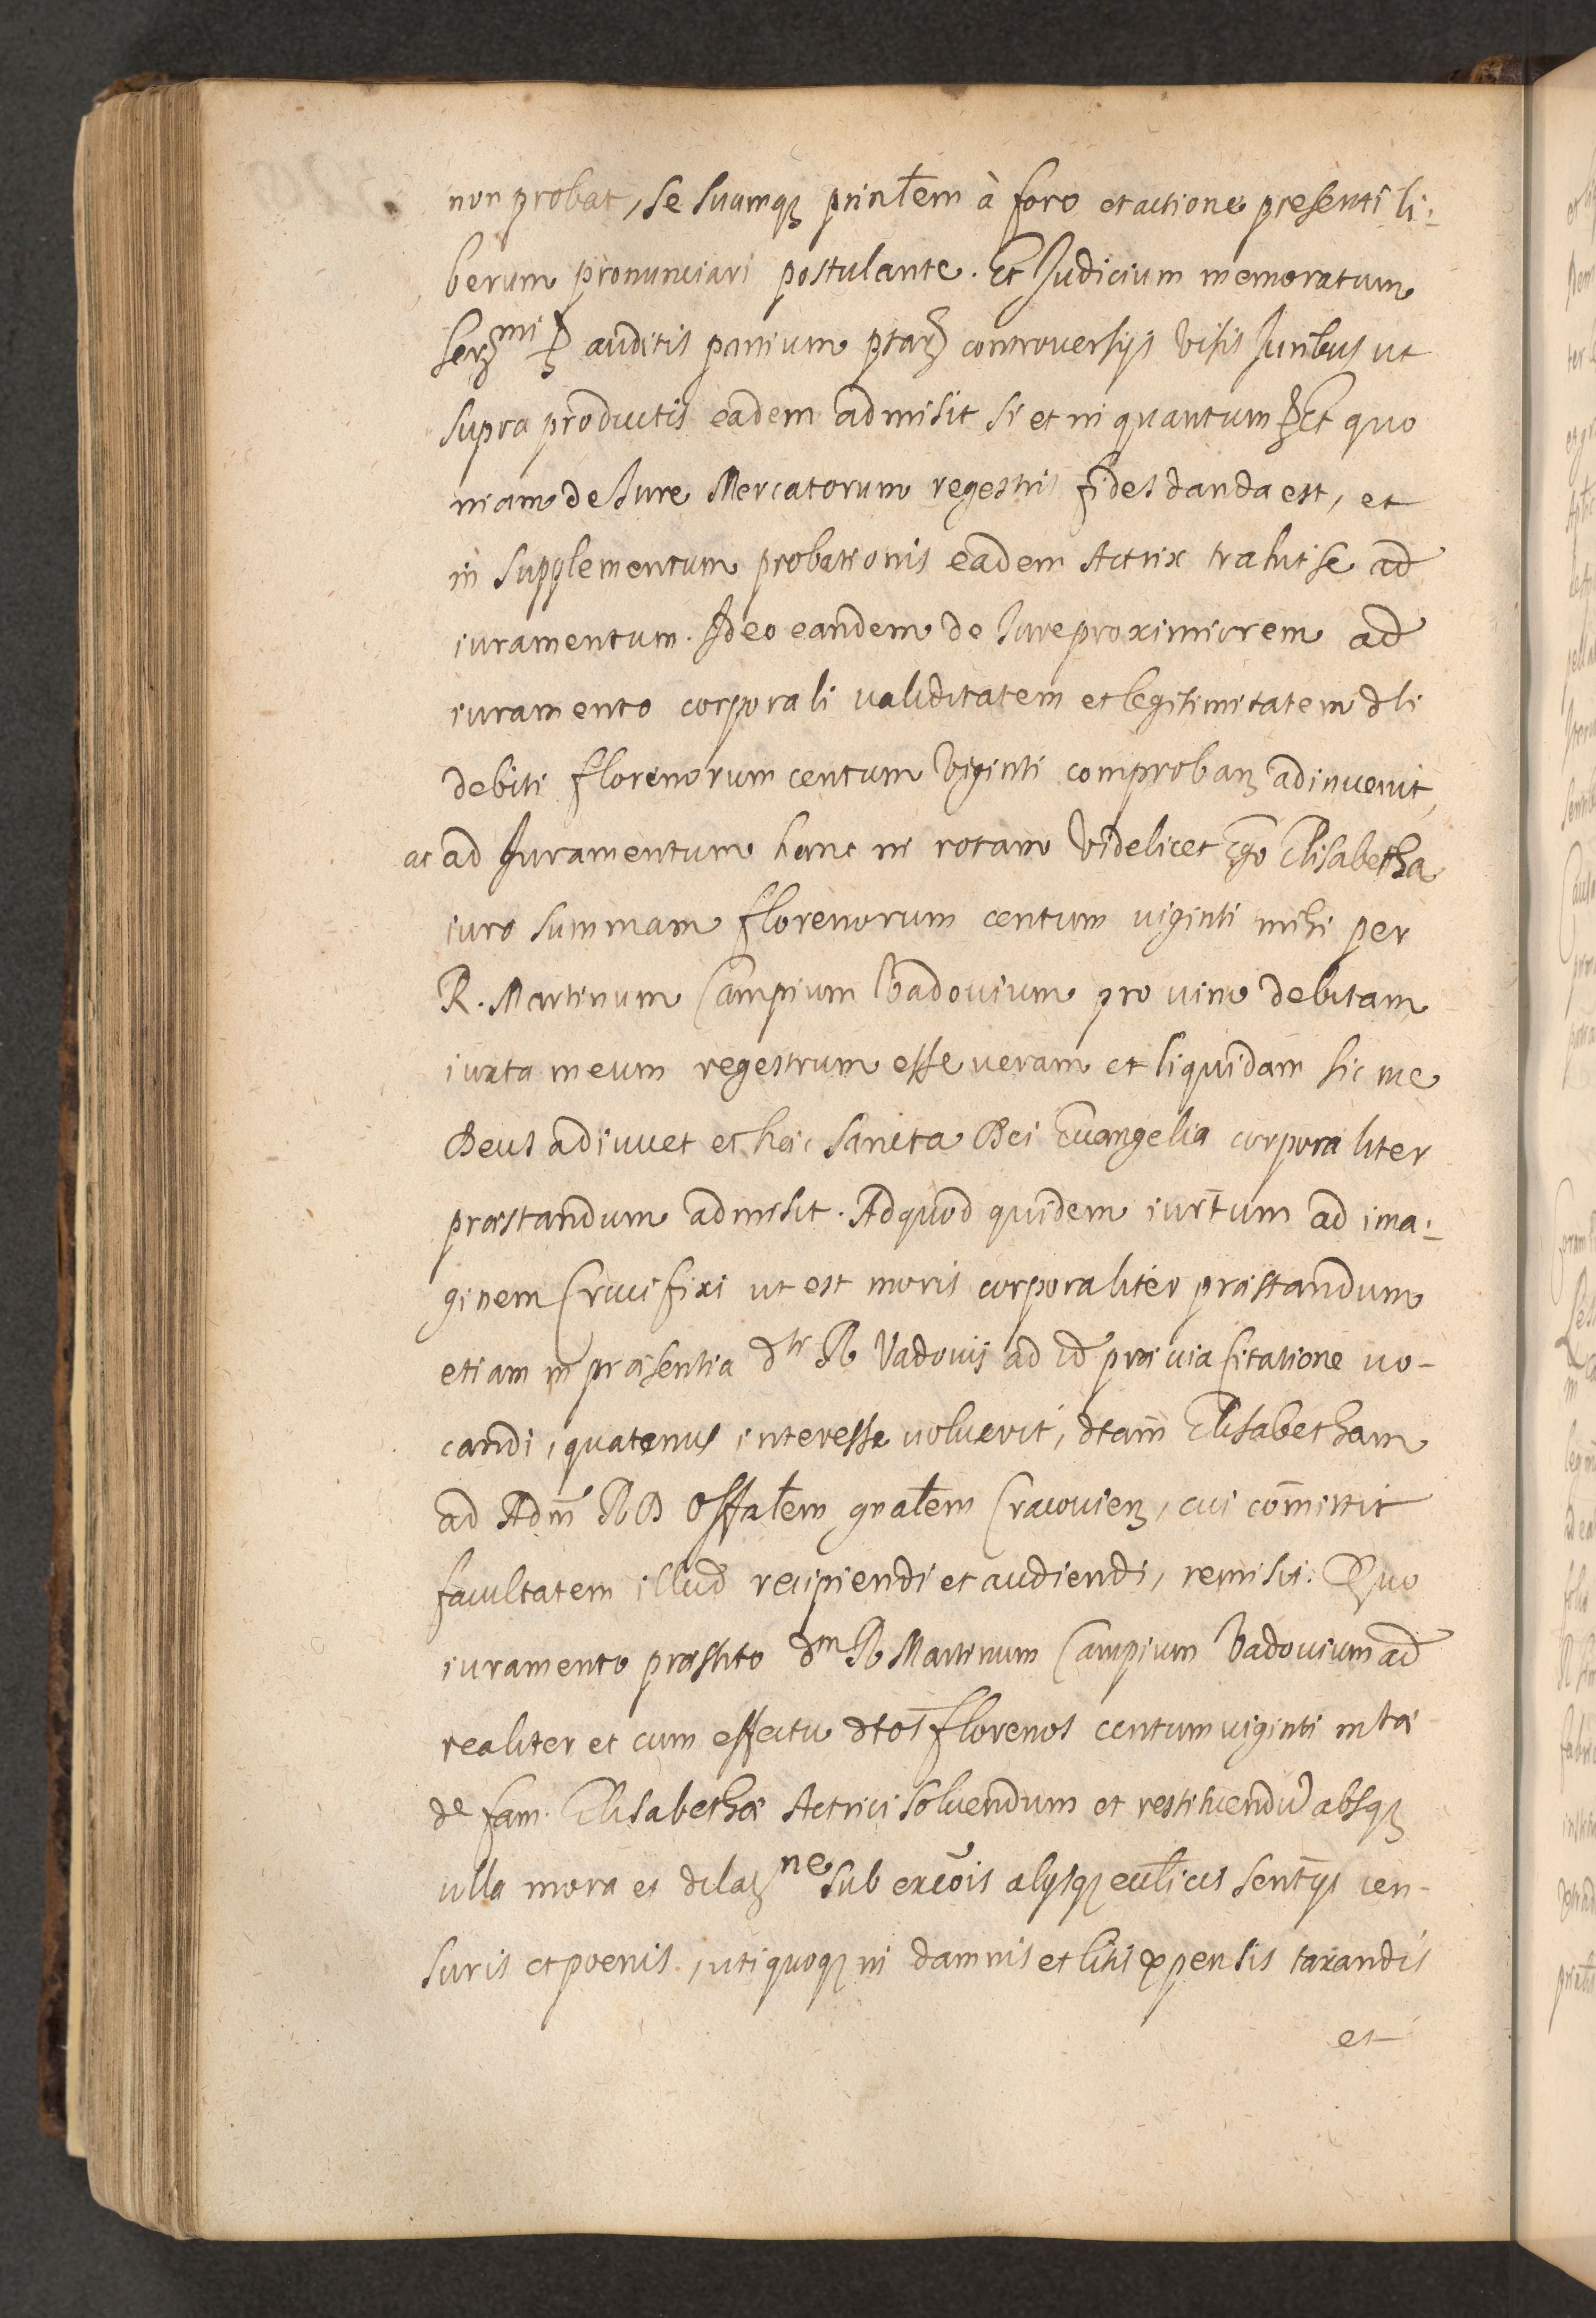 non probat, se suumqꝫ prin̄tem à foro et actione presenti li:
berum pronunciari postulante. Et Judicium memoratum
auditis partium ptarꝫ controversijs visis Juribus ut
supra productis eadem admisit si et in quantum Et quo
niam de Jure Mercatorum regestris fides danda est, et
in supplementum probationis eadem Actrix trahit se ad
iuramentum. Ideo eandem de Jure proximiorem ad
iuramento corporali validitatem et legitimitatem dti
debiti florenorum centum viginti comprobanꝫ adinvenit,
ac ad Juramentum hanc in rotam videlicet Ego Elisabetha
iuro summam florenorum centum viginti mihi per
R. Martinum Campium Vadovium pro vino debitam
iuxta meum regestrum esse veram et liquidam sic me
Deus adiuvet et hæc sancta Dei Evangelia corporaliter
præstandum admisit. Ad quod quidem iurt̄um ad ima:
ginem Crucifixi ut est moris corporaliter præstandum
etiam in præsentia dti R Vadovij ad id prævia citatione vo-
candi, quatenus interesse voluerit, dtam̄ Elisabetham
ad Adm̄ RD Offalem gnalem Cracovienꝫ, cui com̄ittit
facultatem illud recipiendi et audiendi, remisit. Quo
iuramento præstito dm R Martinum Campium Vadovium ad
realiter et cum effectu dtos̄ florenos centum viginti
fam. Elisabethæ Actrici solvendum et restituendū absqꝫ
ulla mora et dilaꝫne sub excōis alijsqꝫ eccl̄icis sent̄ijs cen-
suris et poenis, uti quoqꝫ in damnis et litis expensis taxandis
et